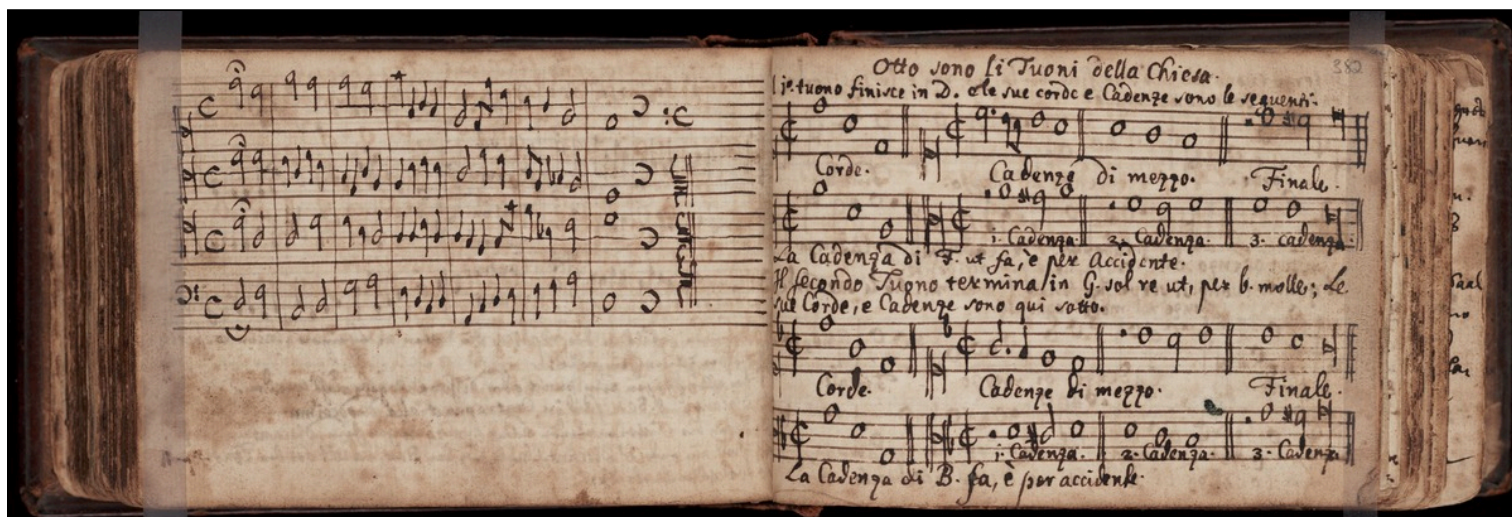 382
Otto sono li Tuoni della Chiesa.
1º. tuono finisce in D. e le sue corde e Cadenze sono le seguenti.
Corde. Cadenze di mezzo. Finale.
1. Cadenza. 2. Cadenza. 3. Cadenza
La Cadenza di F. ut fa, è per Accidente.
Il secondo Tuono termina in G. sol re ut, per b. molle; Le
sue Corde, e Cadenze sono qui sotto.
Corde. Cadenze di mezzo. Finale.
1. Cadenza. 2. Cadenza. 3. Cadenza
La Cadenza di B. fa, è per accidente.